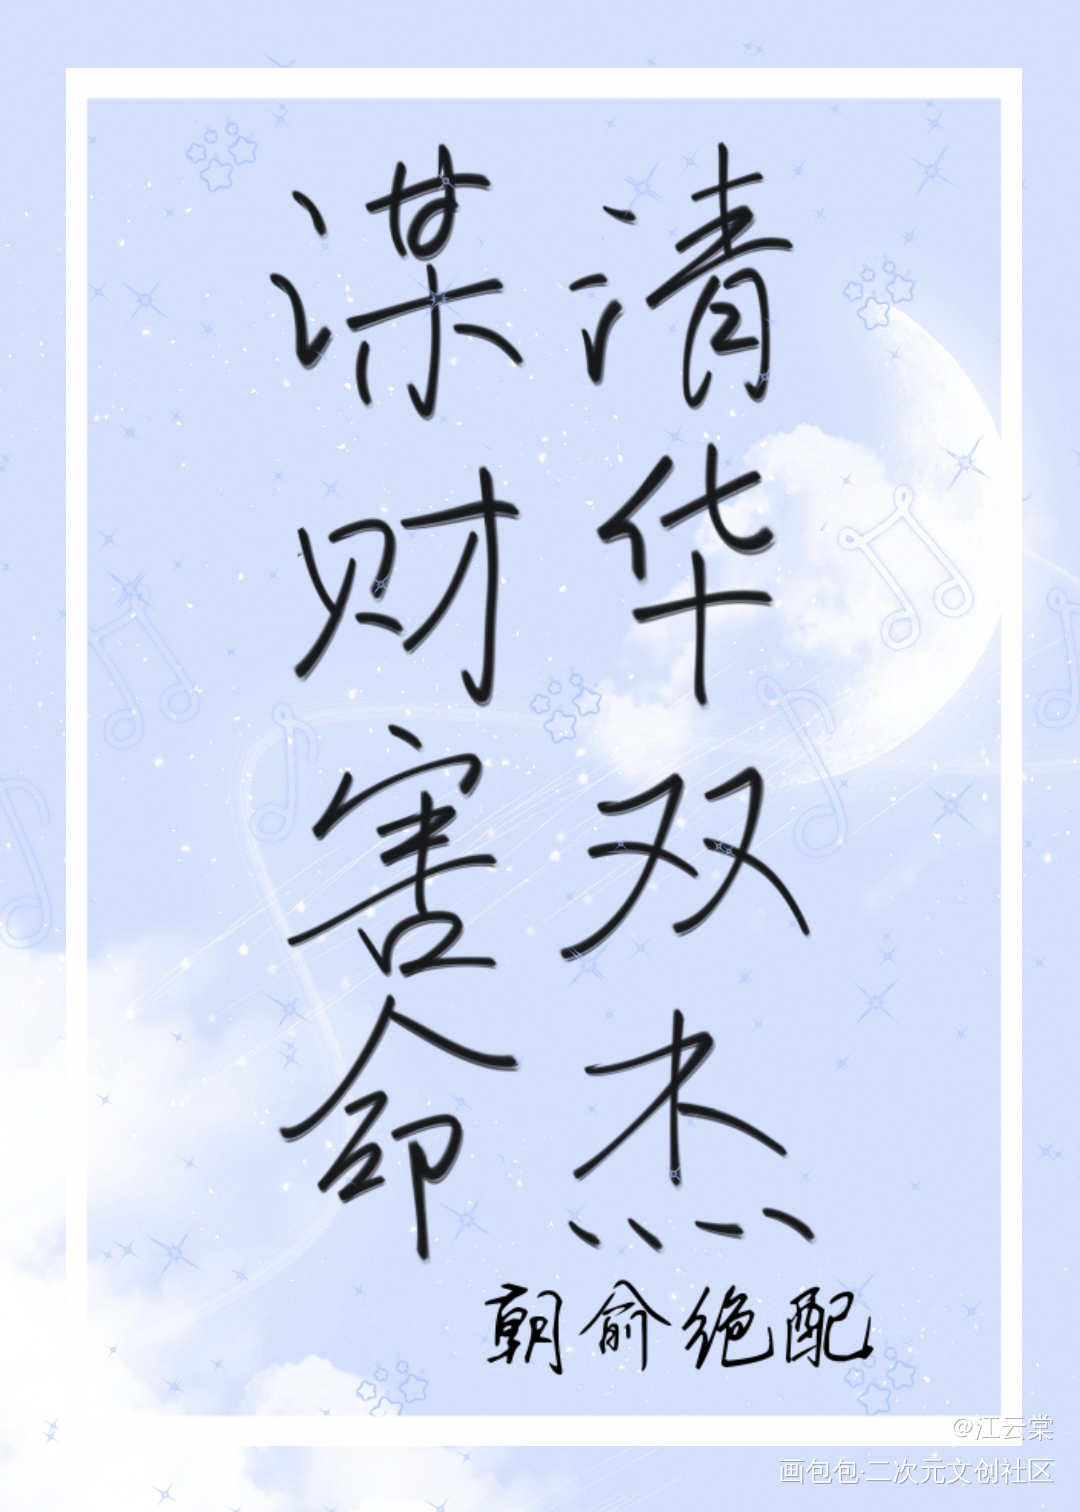 清华双杰
谋财害命
朝俞绝配
@江云棠
画包包·二次元文创社区